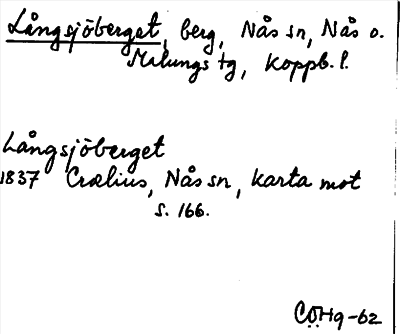 Långsjöberget, berg, Nås sn, Nås o.
Malungs tg, Koppb. l.
Långsjöberget
1837 Crælius, Nås sn, karta mot
s. 166.
CÖHg-62